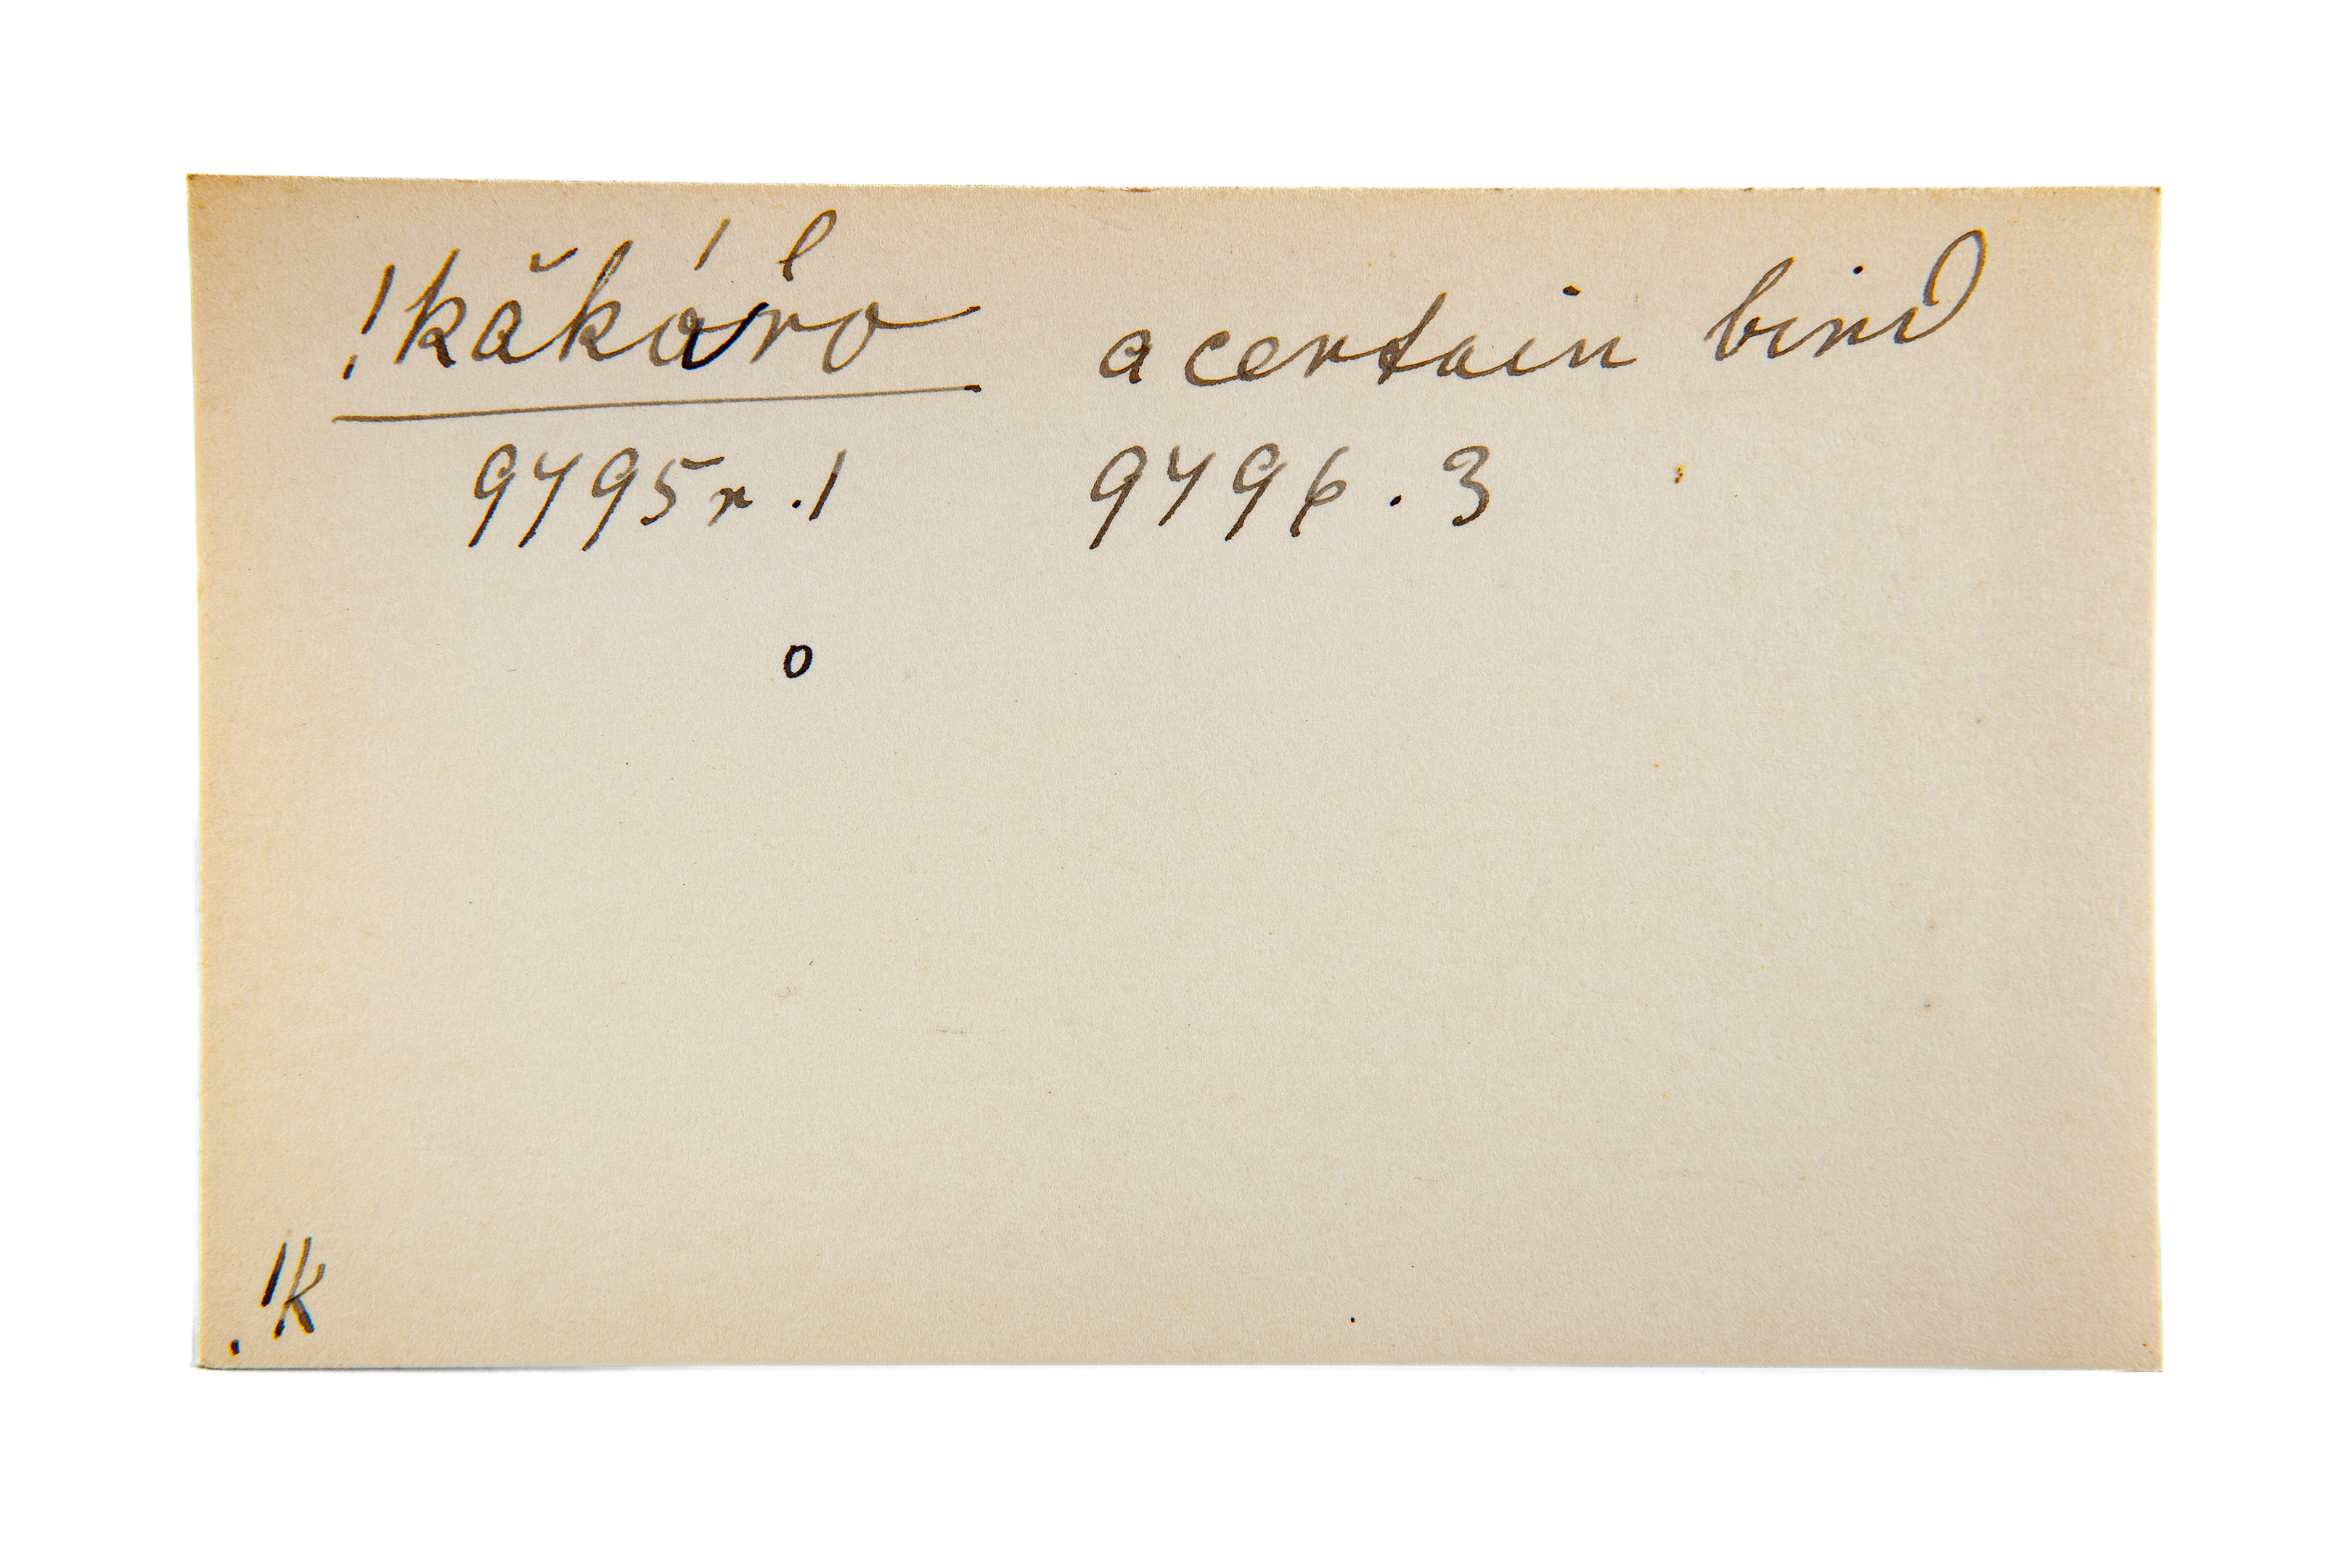 !kăkáro a certain bird
9495r.1 9496.3
o
!k